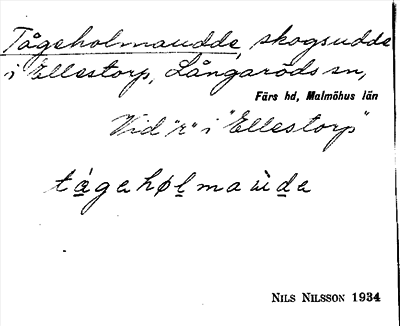 Tågeholmaudde, skogsudde
i Ellestorp, Långaröds sn,
Färs hd, Malmöhus län
Vid "r" i "Ellestorp"
tágahøl̲maùd̲a
NILS NILSSON 1934